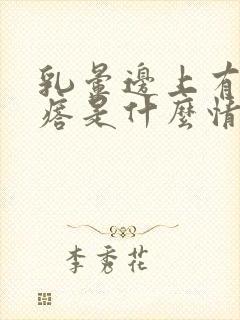 乳暈邊上有
痞是什麼情
李秀花